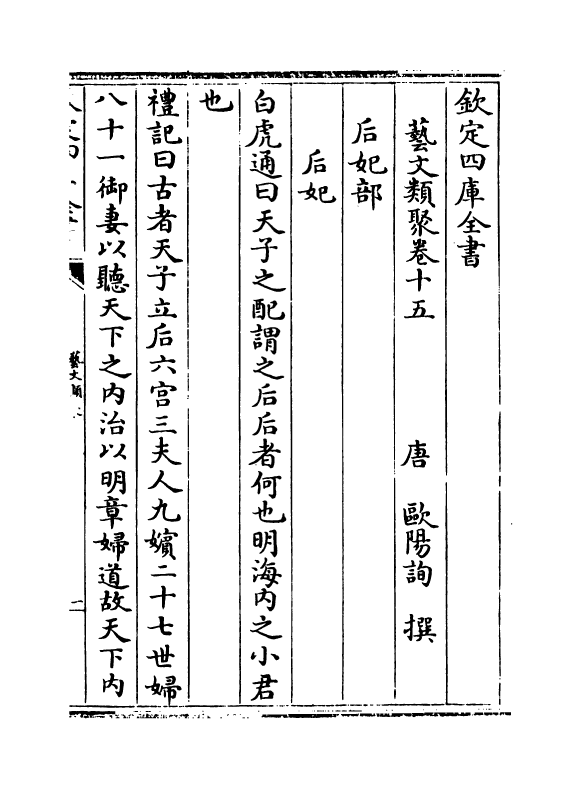 欽定四庫全書
藝文類聚卷十五
唐 歐陽詢 撰
后妃部
后妃
白虎通曰天子之配謂之后后者何也明海内之小君
也
禮記曰古者天子立后六宫三夫人九嬪二十七世婦
八十一御妻以聽天下之内治以明章婦道故天下内
藝文類
二